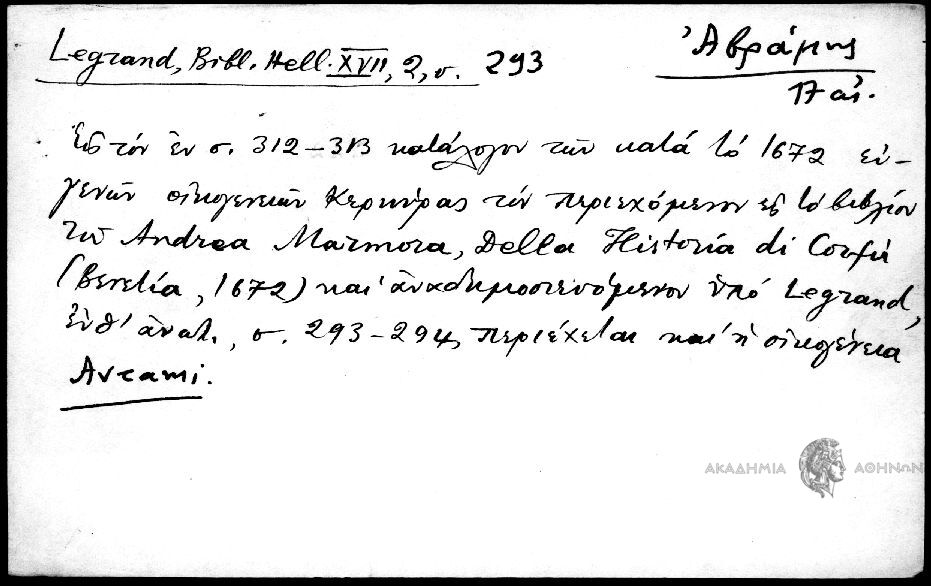 Legrand, Bibl. Hell. XVII, 2, σ. 293
Ἀβράμης
17 αἰ.
Εἰς τόν ἐν σ. 312-313 κατάλογον τῶν κατά τό 1672 εὐ-
γενῶν οἰκογενειῶν Κερκύρας τόν περιεχόμενον εἰς τό βιβλίον
τοῦ Andrea Marmora, Della Historia di Corfù
(Βενετία, 1672) καί ἀναδημοσιευόμενον ὑπό Legrand,
ἔνθ' ἀνωτ., σ. 293-294, περιέχεται καί ἡ οἰκογένεια
Avrami.
ΑΚΑΔΗΜΙΑ ΑΘΗΝΩΝ